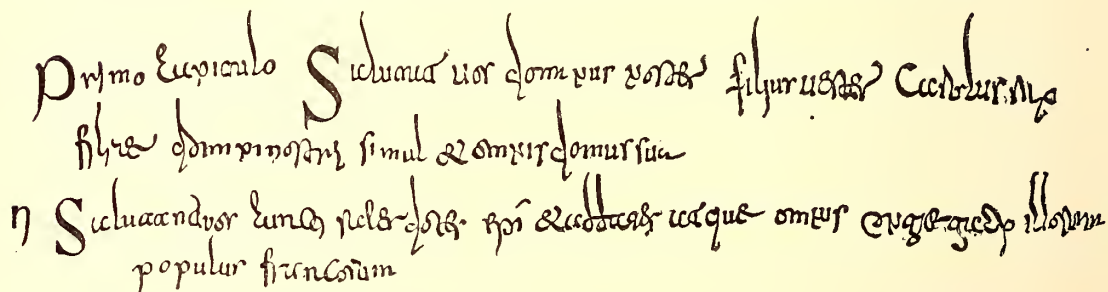 Primo capitulo Salutat uos domnus noster filius uester Carolus rex
filiae domni nostri simul & omnis domus sua
II Salutant uos cuncti sacerdotes epi & abbates atque omnis congregatio illorum
populus francorum